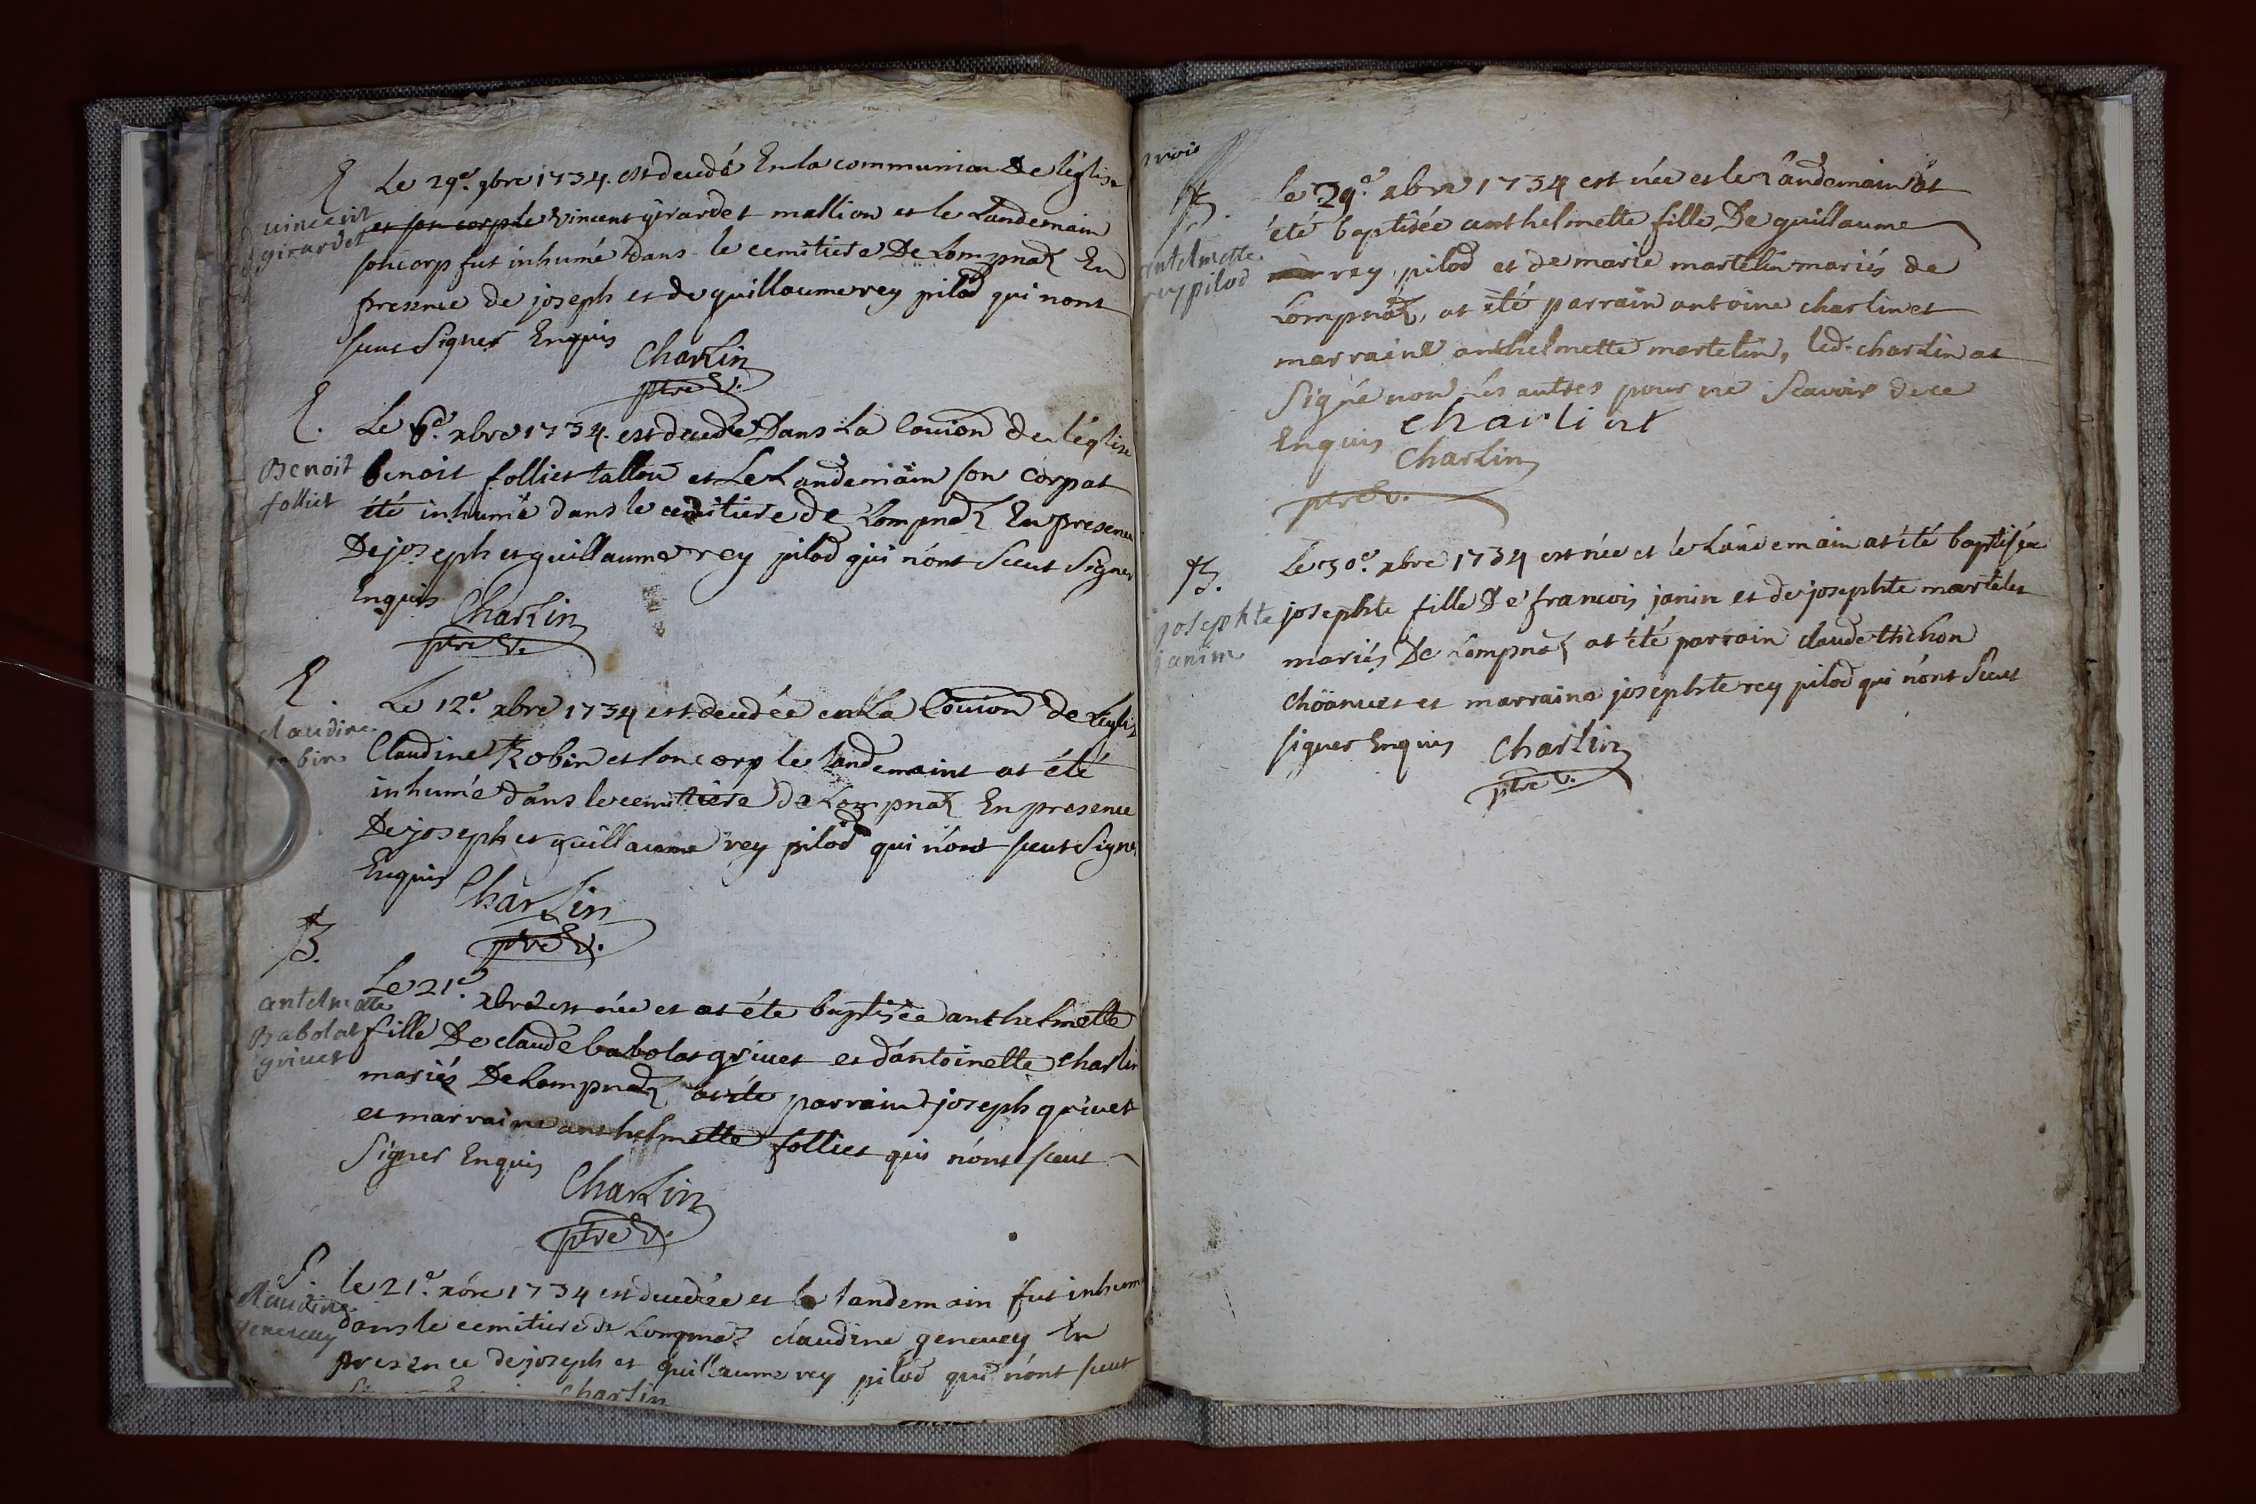 Le 29e. 9bre 1734. est decedé En la communion De l'église
vincent
girardet
et son corp le vincent girardet mallion et le Landemain
son corp fut inhumé dans le cemitiere De Lompnaz En
presence de joseph et de guillaume rey pilod qui nont
sceut Signer Enquis
Charlin
ptre V.
Le 6e. xbre 1734. est decedé Dans La Couion de l'église
Benoit
folliet
benoit folliet tallon et Le Landemain son corp at
été inhumé dans le cemitiere de Lompnaz En presence
De joseph et guillaume rey pilod qui n'ont sceut Signer
Enquis
Charlin
ptre V.
Le 12e. xbre 1734 est decedée en La Couion de L'eglis
claudine
robin
Claudine Robin et son corp le landemaint at été
inhumé dans le cemitiere de Lompnaz En presence
De joseph et guillaume rey pilod qui n'ont sceut Signer
Enquis
Charlin
ptre V.
B.
Le 21e. xbre est née et at été baptisée anthelmette
antelmette
Babolat
grivet
fille De claude babolat grivet et d'antoinette charlin
mariés De Lompnaz at été parrain joseph grivet
et marraine anthelmette folliet qui n'ont sceut
Signer Enquis
Charlin
ptre V.
S.
le 21e. xbre 1734 est decedée et le landemain fut inhum
claudine
genevey
dans le cemitiere de Lompnaz claudine genevey En
presence de joseph et guillaume rey pilod qui n'ont sceut
Charlin
B.
le 29e. xbre 1734 est née et le Landemain at
été baptisée anthelmette fille De guillaume
antelmette
rey pilod
rey pilod et de marie martelin mariés de
Lompnaz, at été parrain antoine charlin et
marraine anthelmette martelin, led. charlin at
Signé non les autres pour ne Scavoir de ce
Enquis
charlint
Charlin
ptre V.
B.
Le 30e. xbre 1734 est née et le Landemain at été baptisée
josephte
janin
josephte fille De francois janin et de josephte martelin
mariés De Lompnaz at été parrain claude thichon
chöanuet et marraine josephte rey pilod qui n'ont Sceut
signer Enquis
Charlin
ptre V.